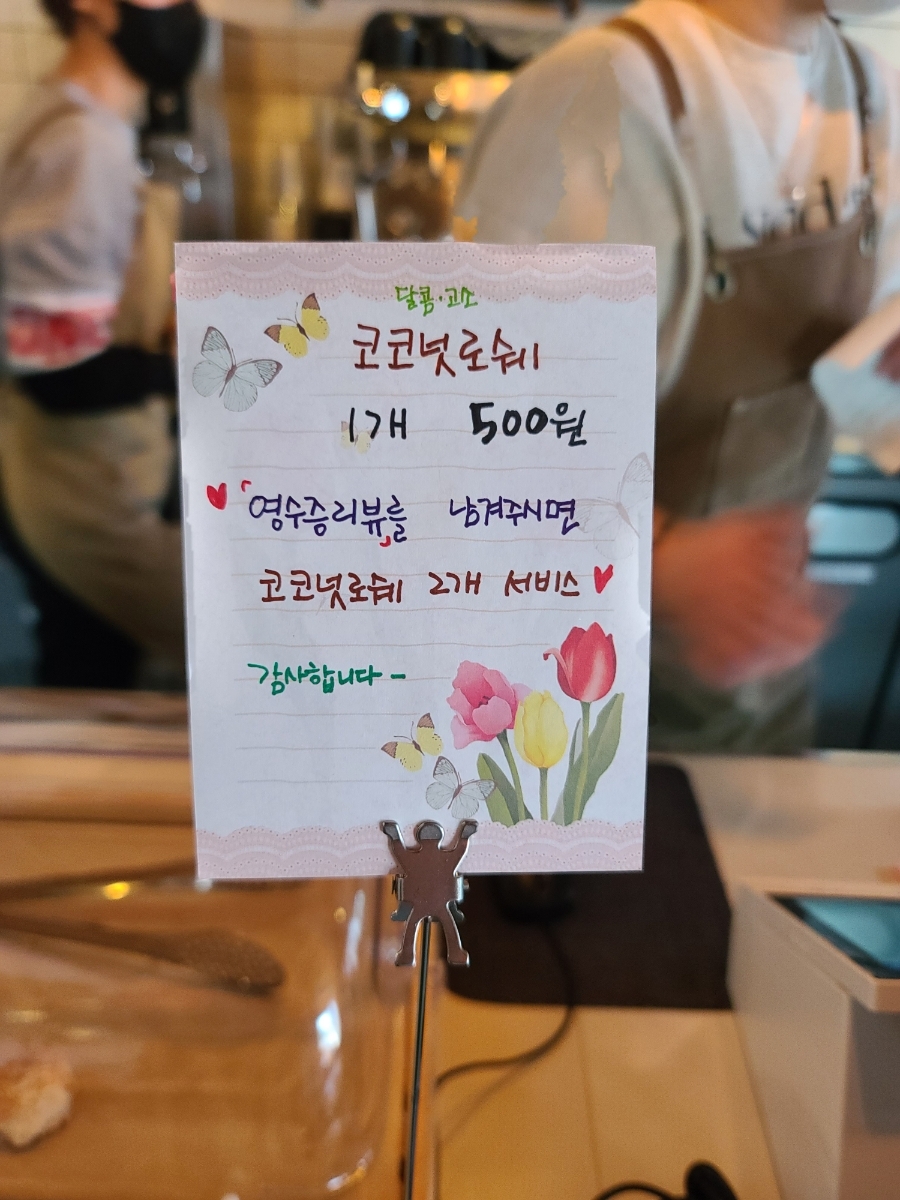 달콤·고소
코코넛로쉐
1개 500원
♥ "영수증리뷰를" 남겨주시면
코코넛로쉐 2개 서비스 ♥
감사합니다 -